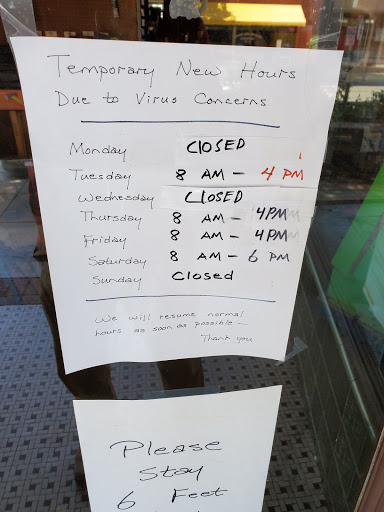 Temporary New Hours
Due to Virus Concerns
Monday CLOSED
Tuesday 8 AM - 4 PM
Wednesday CLOSED
Thursday 8 AM - 4PM
Friday 8 AM - 4PM
Saturday 8 AM - 6 PM
Sunday Closed
We will resume normal
hours as soon as possible -
Thank you
Please
Stay
6 Feet